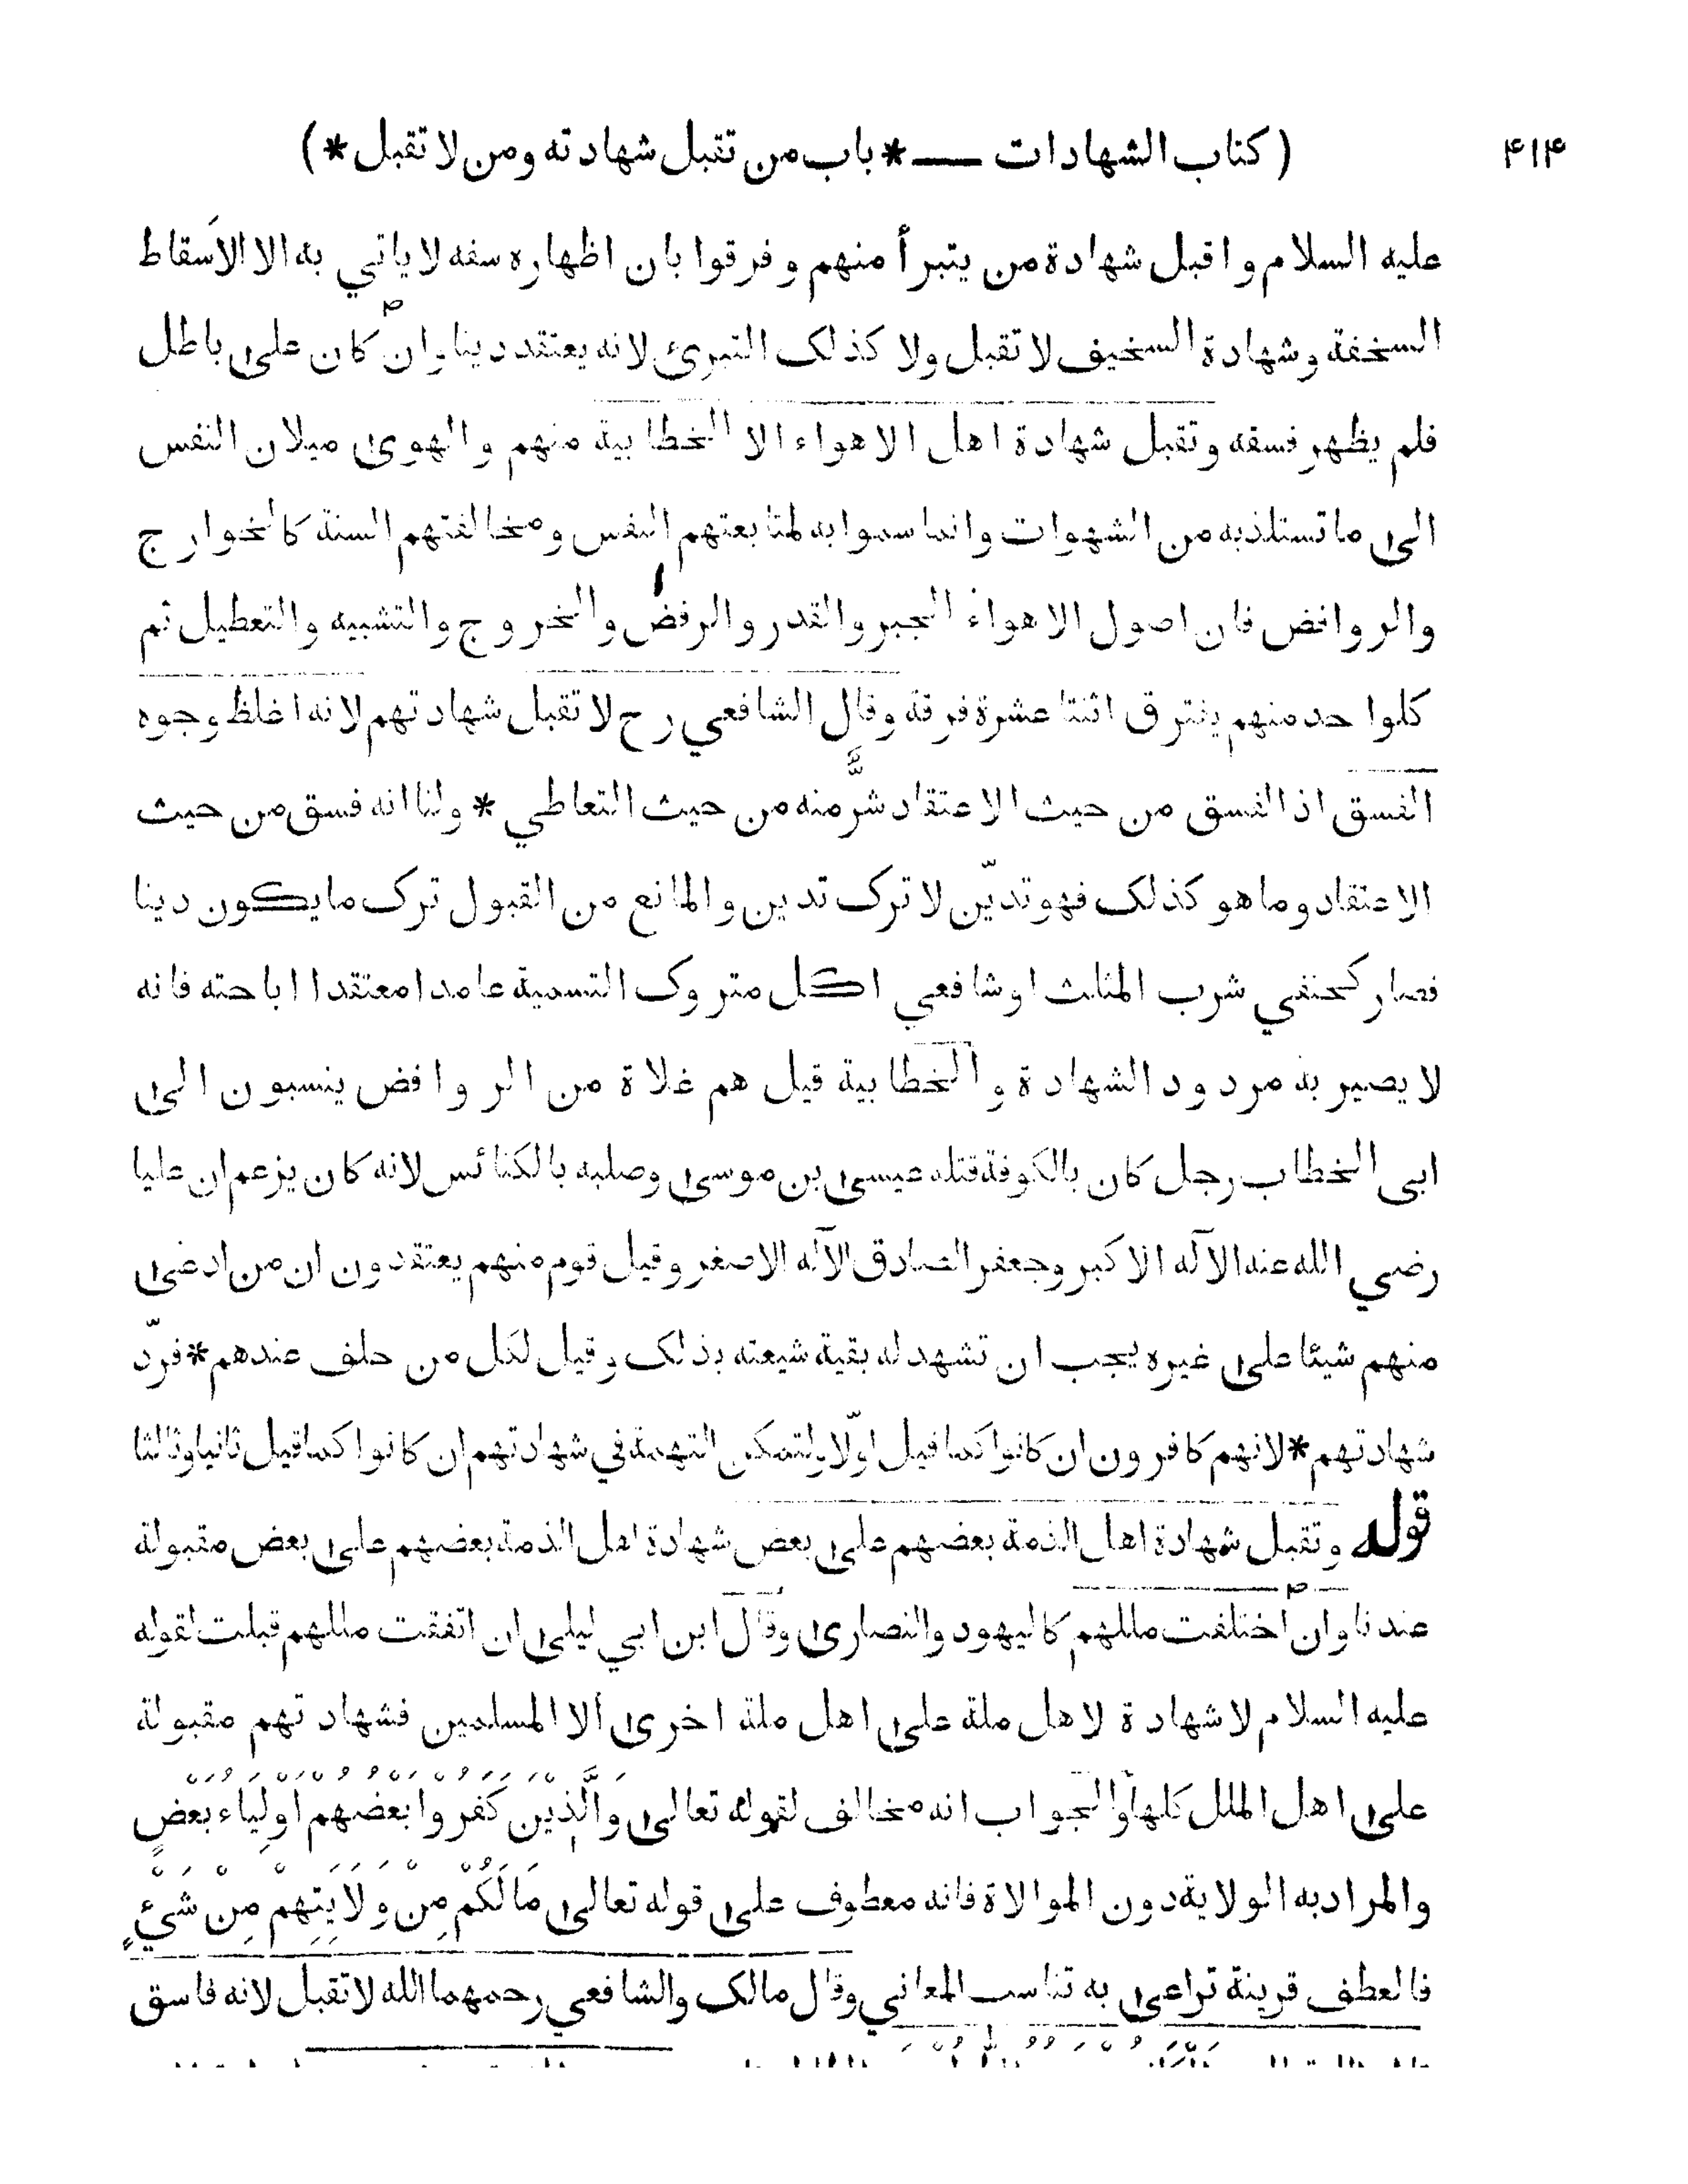 ۴۱۴ ( كتاب الشهادات — * باب من تقبل شهادته ومن لا تقبل * )
عليه السلام واقبل شهادة من يتبرأ منهم وفرقوا بان اظهاره سفه لا ياتي به الا الاسقاط
السخفة وشهادة السخيف لا تقبل ولا كذلك التبرئ لانه يعتقد دينا وان كان على باطل
فلم يظهر فسقه وتقبل شهادة اهل الاهواء الا الخطابية منهم والهوى ميلان النفس
الى ما تستلذ به من الشهوات وانما سموا به لمتابعتهم النفس ومخالفتهم السنة كالخوارج
والروافض فان اصول الاهواء الجبر والقدر والرفض والخروج والتشبيه والتعطيل ثم
كل واحد منهم يفترق اثنتا عشرة فرقة وقال الشافعي رح لا تقبل شهادتهم لانه اغلظ وجوه
الفسق اذ الفسق من حيث الاعتقاد شرّ منه من حيث التعاطي * ولنا انه فسق من حيث
الاعتقاد وما هو كذلك فهو تديّن لا ترك تدين والمانع من القبول ترك ما يكون دينا
فصار كحنفي شرب المثلث او شافعي اكل متروك التسمية عامدا معتقدا اباحته فانه
لا يصير به مردود الشهادة والخطابية قيل هم غلاة من الروافض ينسبون الى
ابى الخطاب رجل كان بالكوفة قتله عيسى بن موسى وصلبه بالكنائس لانه كان يزعم ان عليا
رضي الله عنه الآله الاكبر وجعفر الصادق الآله الاصغر وقيل قوم منهم يعتقدون ان من ادعى
منهم شيئا على غيره يجب ان تشهد له بقية شيعته بذلك وقيل لكل من حلف عندهم * فردّ
شهادتهم * لانهم كافرون ان كانوا كما قيل اوّلا ولتمكن التهمة في شهادتهم ان كانوا كما قيل ثانيا وثالثا
قوله وتقبل شهادة اهل الذمة بعضهم على بعض شهادة اهل الذمة بعضهم على بعض مقبولة
عندنا وان اختلفت مللهم كاليهود والنصارى وقال ابن ابي ليلى ان اتفقت مللهم قبلت لقوله
عليه السلام لا شهادة لاهل ملة على اهل ملة اخرى الا المسلمين فشهادتهم مقبولة
على اهل الملل كلها والجواب انه مخالف لقوله تعالى وَالَّذِيْنَ كَفَرُوا بَعْضُهُمْ اَوْلِيَاءُ بَعْضٍ
والمراد به الولاية دون الموالاة فانه معطوف على قوله تعالى مَا لَكُمْ مِنْ وَلَايَتِهِمْ مِنْ شَيْءٍ
فالعطف قرينة تراعى به تناسب المعاني وقال مالك والشافعي رحمهما الله لا تقبل لانه فاسق